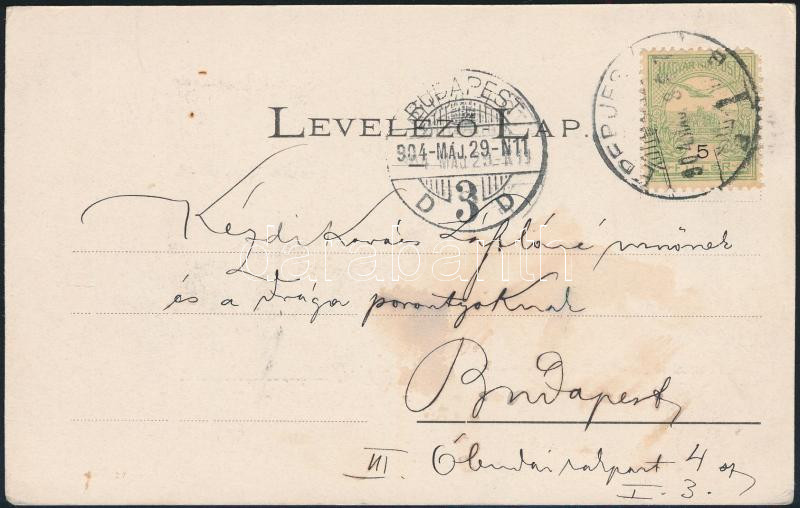 LEVELEZŐ LAP.
BUDAPEST
904-MÁJ.29-N11
D 3 D
MAGYAR KIR. POSTA
5
Kézdi Kovács Lászlóné urnőnek
és a drága porontyoknak
Budapest
III. Óbudai rakpart 4 sz
I. 3.
darabanth